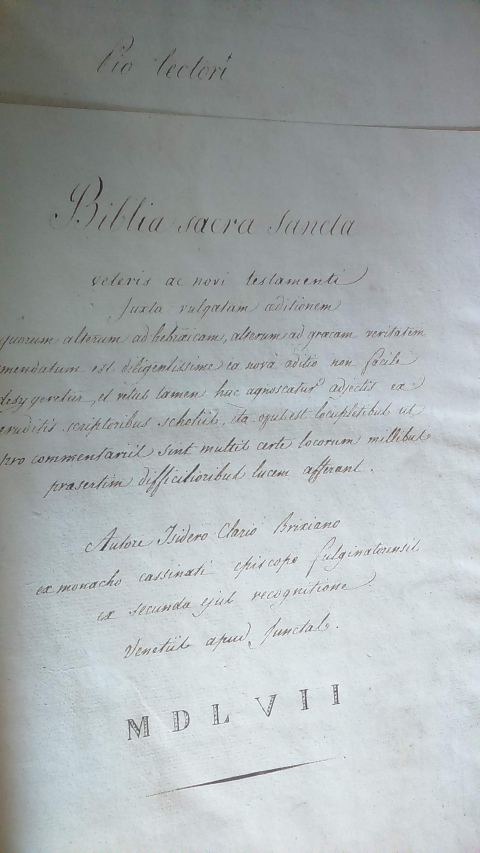 Pio lectori
Biblia sacra sancta
veteris ac novi testamenti
juxta vulgatam æditionem
quorum alterum ad hebraicam, alterum ad græcam veritatem
mendatum est diligentissime
et novâ æditio non facile
et vetus tamen hac agnoscatur adjectis ex
eruditis scriptoribus scholiis, ita locupletibus ut
pro commentariis sint multis certe locorum millibus
præsertim difficilioribus lucem afferant.
Autore Isidoro Clario Brixiano
ex monacho cassinati episcopo fulginatensis
ex secunda ejus recognitione
Venetiis apud Junctas.
MDLVII